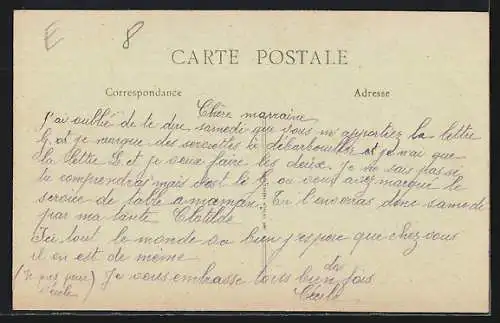 E 8
CARTE POSTALE
Correspondance Adresse
Chère marraine
J'ai oublié de te dire samedi que vous m'apportiez la lettre
G. et je marque des serviettes à débarbouiller et je n'ai que
la lettre L. et je veux faire les deux. Je ne sais pas si
tu comprendras mais c'est le G. ou vous avez marqué le
service de table à maman. Tu l'enverras donc samedi
par ma tante Clotilde
Ici tout le monde va bien j'espère que chez vous
il en est de même
(Je pars pour l'école) Je vous embrasse tous bien des fois
Cécile